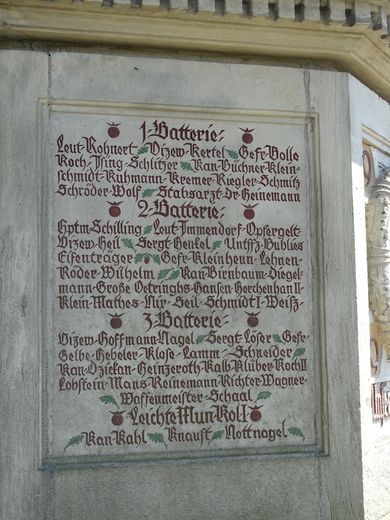 1. Batterie:
Leut Rohnert Vizew Kertel Gefr Bolle
Koch Ising Schlüther Kan Büchner Klein-
schmidt Kuhmann Kremer Riegler Schmitz
Schröder Wolf Stabsarzt Dr Heinemann
2. Batterie:
Hptm Schilling Leut Immendorf Opfergelt
Vizew Heil Sergt Henkel Untffz Bublies
Eisenträger Gefr Kleinhenn Lehnen
Röder Wilhelm Kan Birnbaum Diegel-
mann Große Oetringhs Hansen Herchenhan II
Klein Mathes Nip Seil Schmidt I Weiß
3. Batterie:
Vizew Hoffmann Nagel Sergt Löser Gefr
Gelbe Hebeler Klose Lamm Schneider
Kan Dziekan Heinzeroth Kalb Klüber Koch II
Lobstein Mans Reinemann Richter Wagner
Waffenmeister Schaal
Leichte Mun Kol I
Kan Kahl Knauft Nottnagel